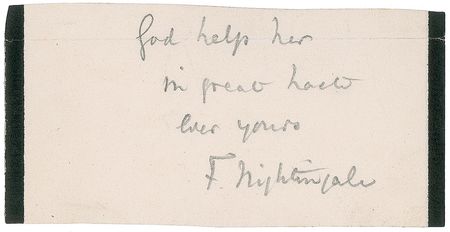 God helps her
in great haste
ever yours
F. Nightingale